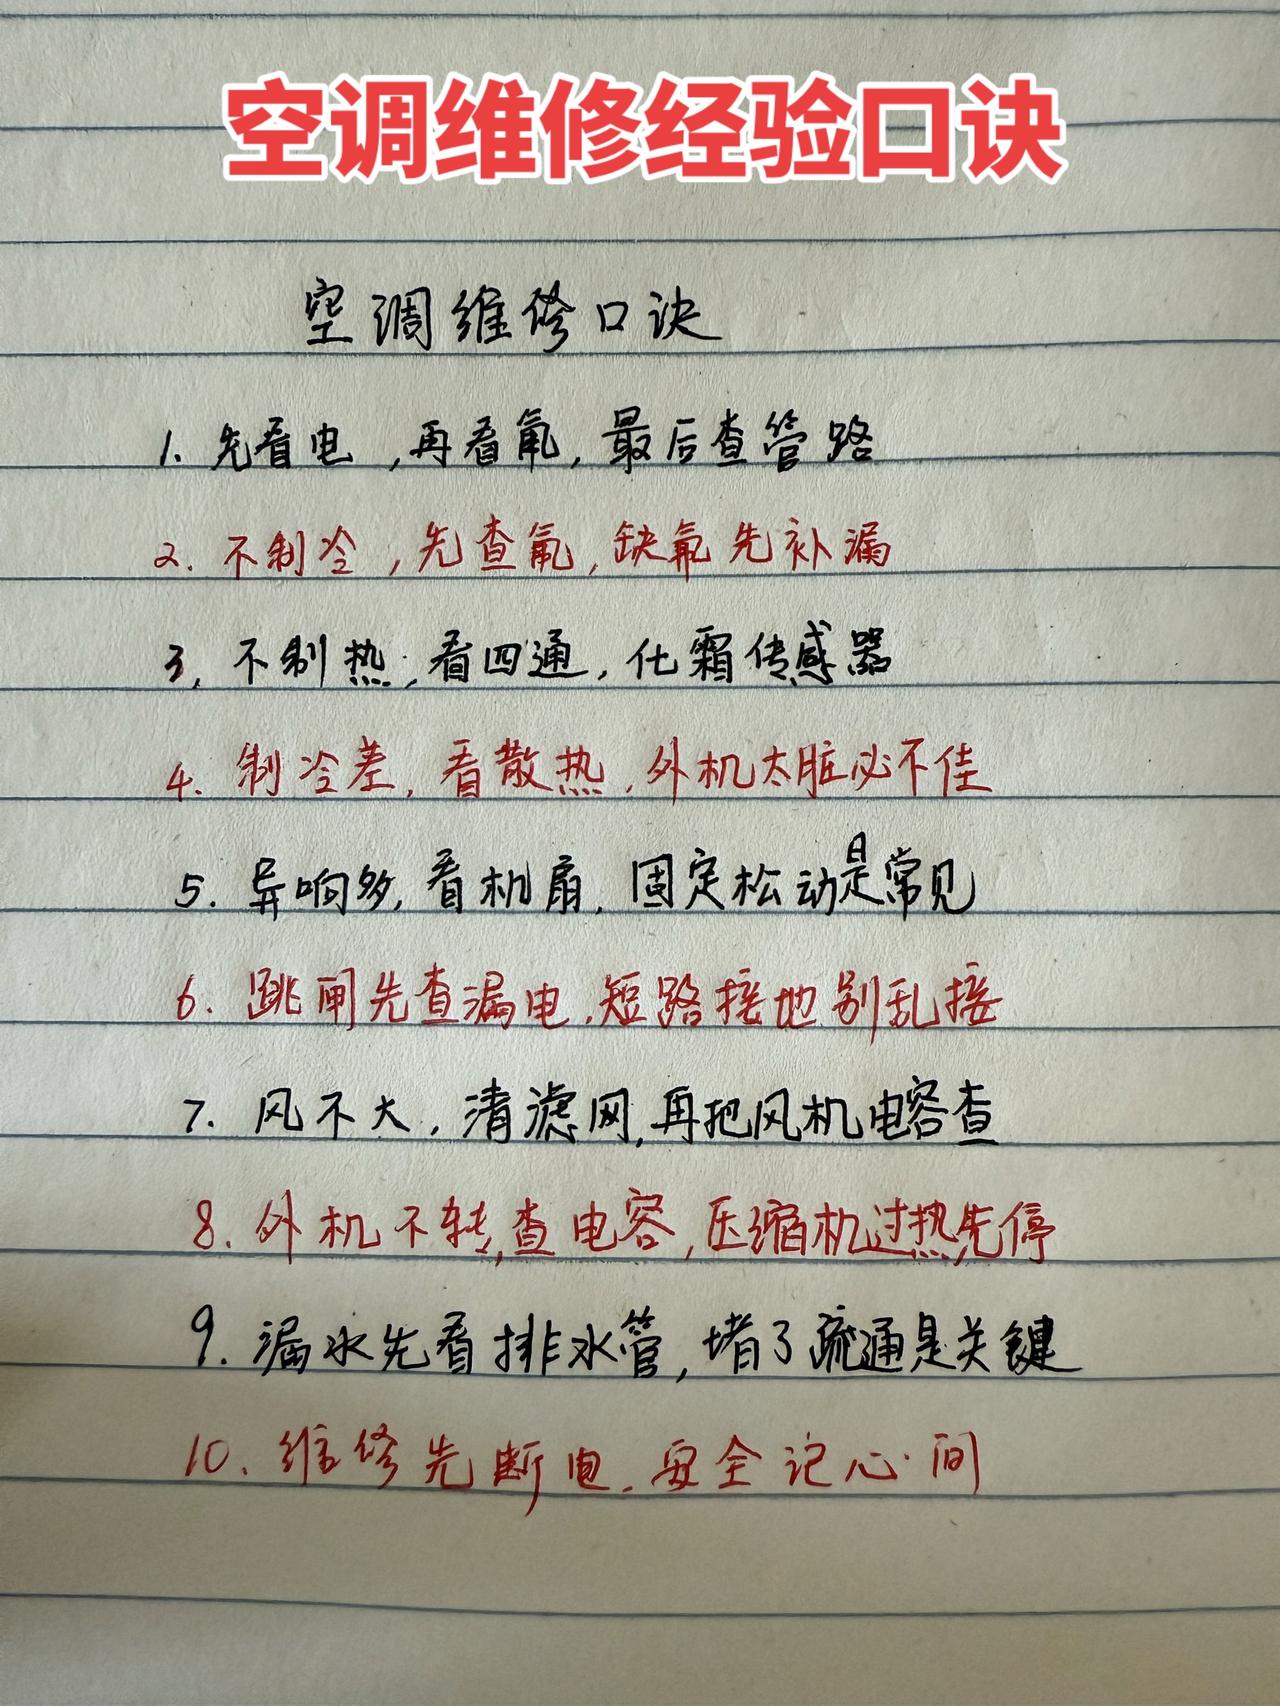 空调维修经验口诀
空调维修口诀
1. 先看电,再看氟,最后查管路
2. 不制冷,先查氟,缺氟先补漏
3, 不制热,看四通,化霜传感器
4. 制冷差,看散热,外机太脏必不佳
5. 异响多,看机扇,固定松动是常见
6. 跳闸先查漏电,短路接地别乱接
7. 风不大,清滤网,再把风机电容查
8. 外机不转,查电容,压缩机过热先停
9. 漏水先看排水管,堵了疏通是关键
10. 维修先断电,安全记心间